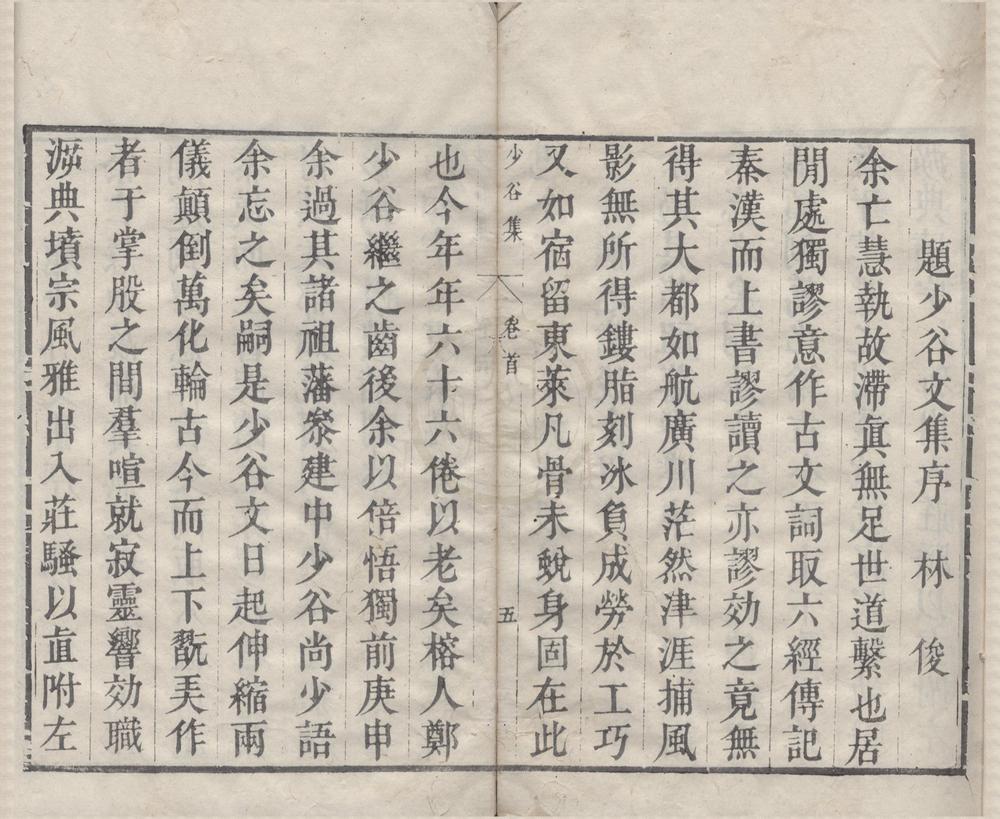 題少谷文集序 林俊
余亡慧執故滯眞無足世道繫也居
閒處獨謬意作古文詞取六經傳記
秦漢而上書謬讀之亦謬効之竟無
得其大都如航廣川茫然津涯捕風
影無所得鏤脂刻冰負成勞於工巧
又如宿留東萊凡骨未蛻身固在此
少谷集 卷首 五
也今年年六十六倦以老矣榕人鄭
少谷繼之齒後余以倍悟獨前庚申
余過其諸祖藩叅建中少谷尚少語
余忘之矣嗣是少谷文日起伸縮兩
儀顛倒萬化輪古今而上下翫美作
者于掌股之間羣喧就寂靈響効職
源典墳宗風雅出入莊騷以直附左